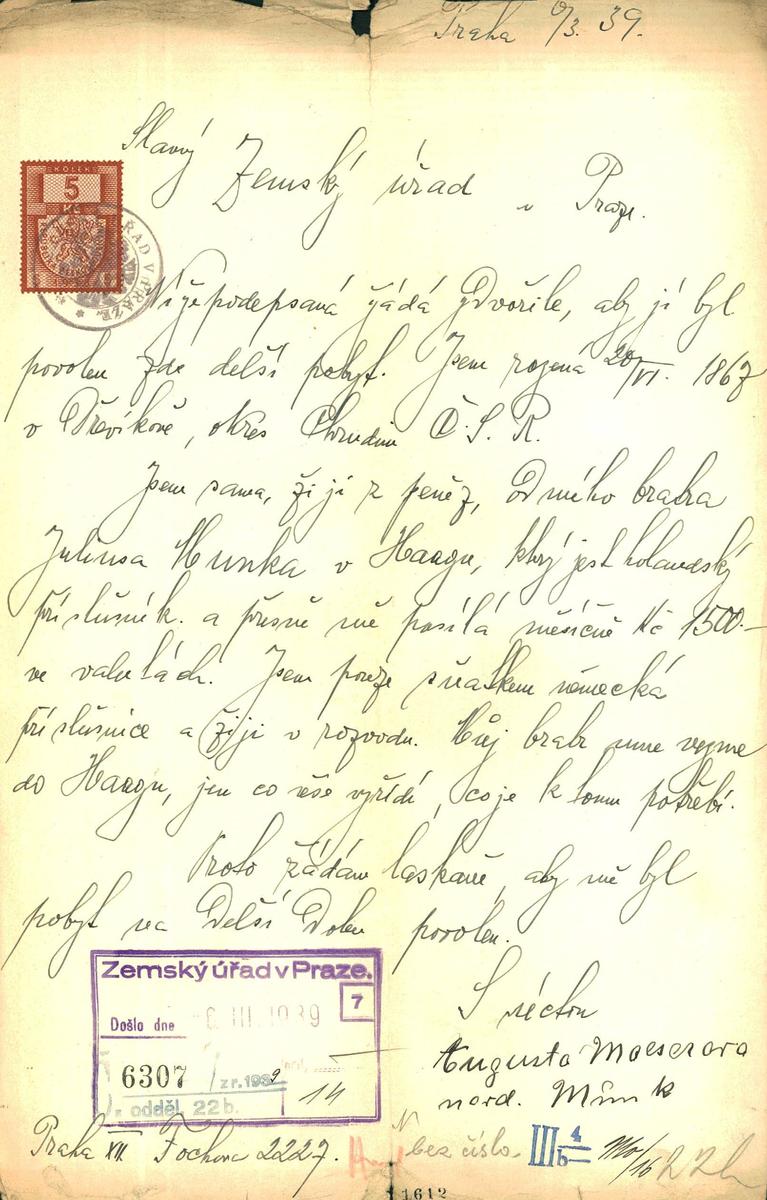 Praha 6/3. 39.
Slavný Zemský úřad v Praze.
KOLEK
5
Kč
ŘAD V PRAZE
Níže podepsaná žádá zdvořile, aby jí byl
povolen zde delší pobyt. Jsem rozená 20/VI. 1867
v Dřevíkově, okres Chrudim Č.S.R.
Jsem sama, žiji z peněz, od mého bratra
Juliusa Munka v Haagu, který jest holandský
příslušník. a přesně mě posílá měsíčně Kč 1500.-
ve valutách. Jsem pouze sňatkem německá
příslušnice a žiji v rozvodu. Můj bratr mne vezme
do Haagu, jen co vše vyřídí, co je k tomu potřebí.
Proto žádám laskavě, aby mě byl
pobyt na delší dobu povolen.
S úctou
Augusta Moeserova
nord. Münk
Zemský úřad v Praze.
7
Došlo dne 6 III. 1939
6307 / z r. 1939
odděl. 22b.
14
Praha XII Fochova 2227.
bez čísla.
III 4/b
22b
1612